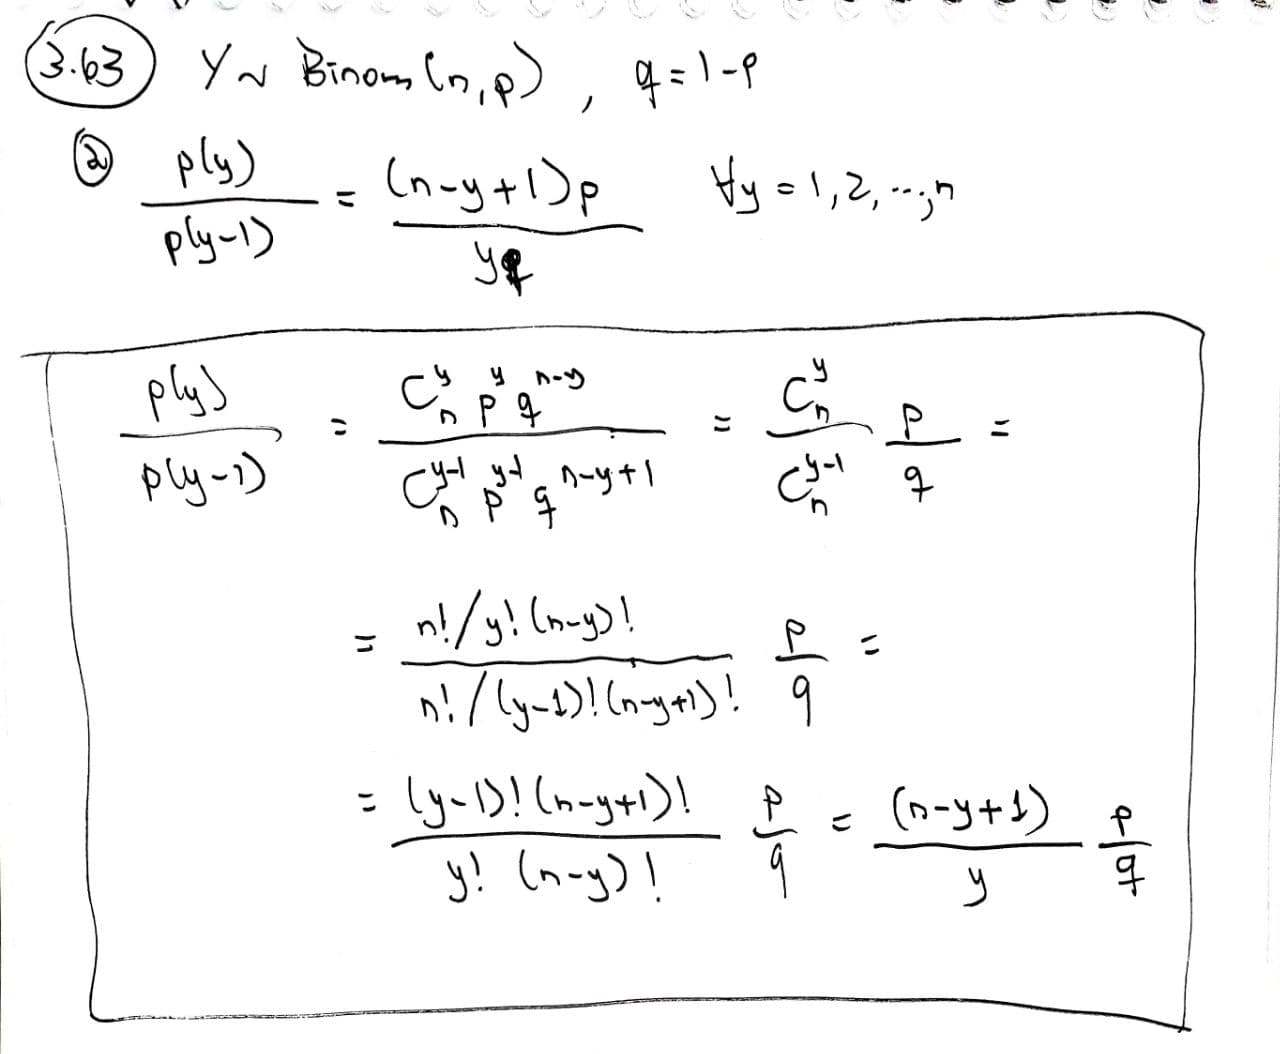 3.63 Y ~ Binom (n,p) , q = 1-p
ⓐ p(y)/p(y-1) = (n-y+1)p / yq ∀y = 1,2,...,n
p(y)/p(y-1) = C_n^y p^y q^{n-y} / C_n^{y-1} p^{y-1} q^{n-y+1} = C_n^y / C_n^{y-1} p/q =
= n!/y!(n-y)! / n!/(y-1)!(n-y+1)! p/q =
= (y-1)!(n-y+1)! / y!(n-y)! p/q = (n-y+1)/y p/q